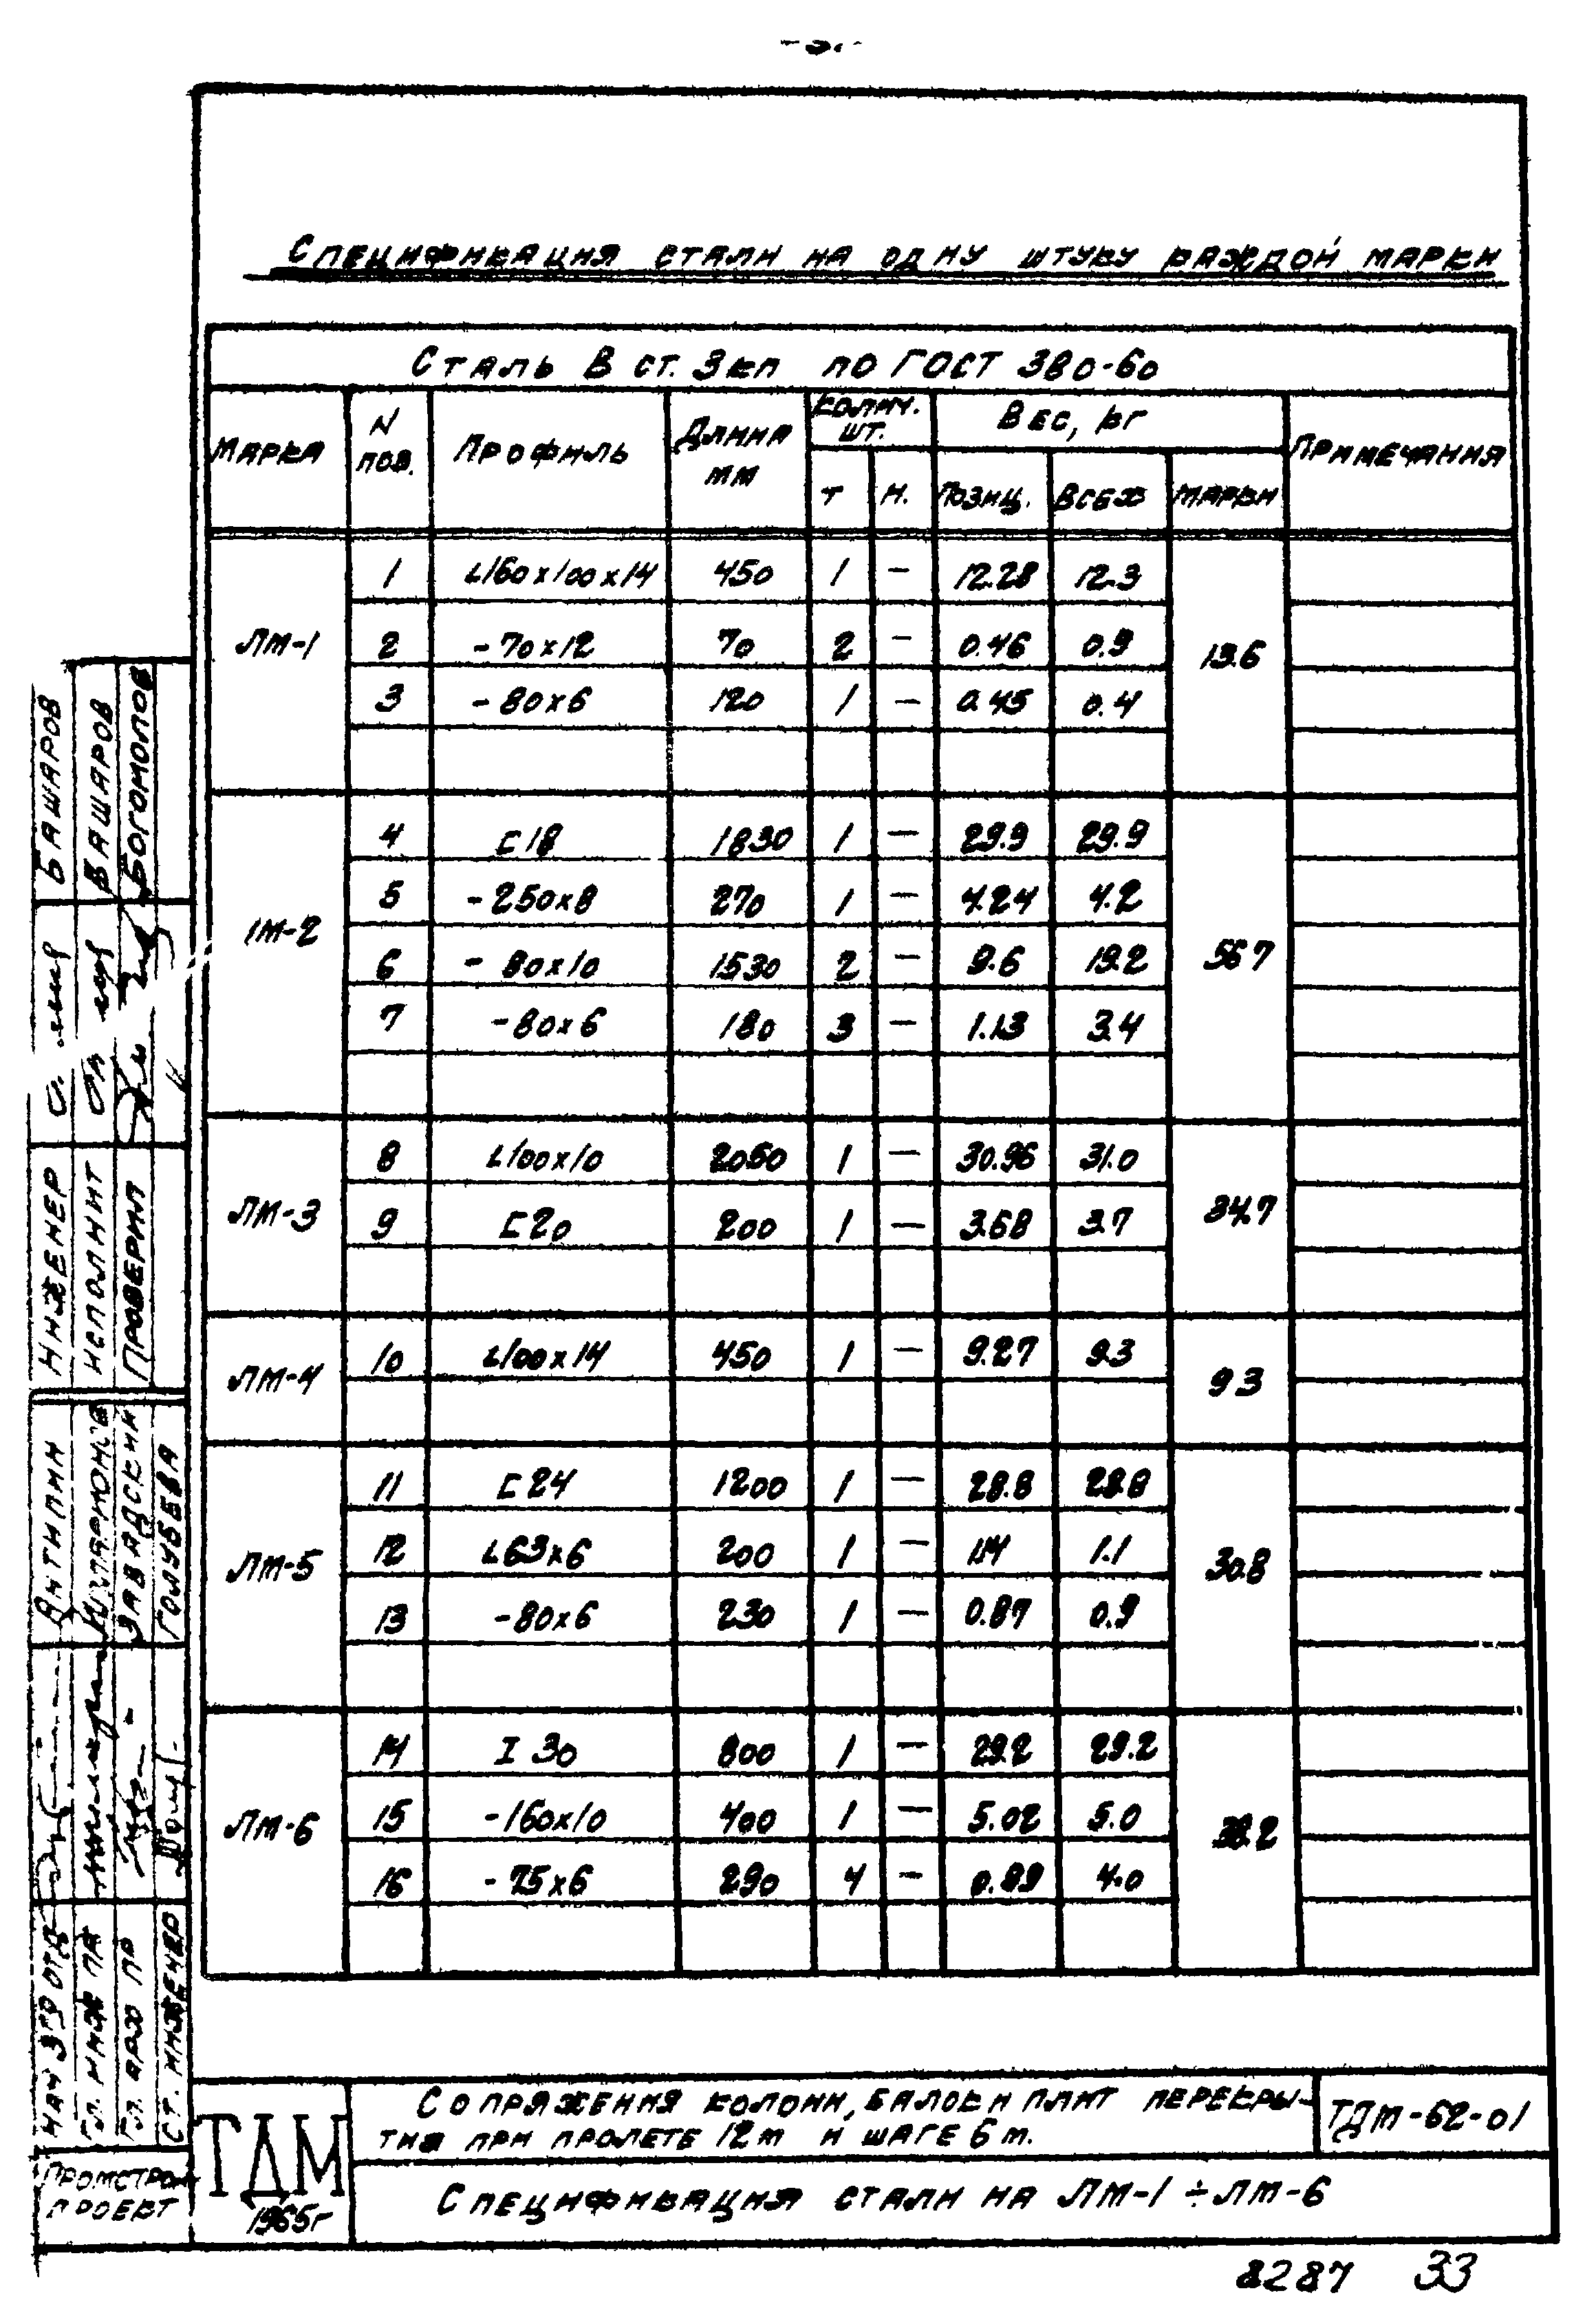 Спецификация стали на одну штуку каждой марки
Сталь В ст. 3кп по ГОСТ 380-60
Марка N поз. Профиль Длина мм Колич. шт. Вес, кг Примечания
т н. Позиц. Всех Марки
ЛМ-1 13.6
1 L160x100x14 450 1 — 12.28 12.3
2 -70x12 70 2 — 0.46 0.9
3 -80x6 120 1 — 0.45 0.4
1М-2 56 7
4 [18 1830 1 — 29.9 29.9
5 -250x8 270 1 — 4.24 4.2
6 -80x10 1530 2 — 9.6 19.2
7 -80x6 180 3 — 1.13 3.4
ЛМ-3 34.7
8 L100x10 2050 1 — 30.96 31.0
9 [20 200 1 — 3.68 3.7
ЛМ-4 9 3
10 L100x14 450 1 — 9.27 9.3
ЛМ-5 30.8
11 [24 1200 1 — 28.8 28.8
12 L63x6 200 1 — 1.14 1.1
13 -80x6 230 1 — 0.87 0.9
ЛМ-6 38.2
14 I 30 800 1 — 29.2 29.2
15 -160x10 400 1 — 5.02 5.0
16 -75x6 290 4 — 0.99 4.0
Инженер Башаров
Исполнит Башаров
Проверил Богомолов
Нач ЭТО отд Антипин
Гл. инж пр
Гл. арх пр Завадский
Ст. инженер Голубева
Промстрой
проект
ТДМ
1965г
Сопряжения колонн, балок и плит перекры-
тия при пролете 12м и шаге 6 м.
ТДМ-62-01
Спецификация стали на ЛМ-1 ÷ ЛМ-6
8287 33